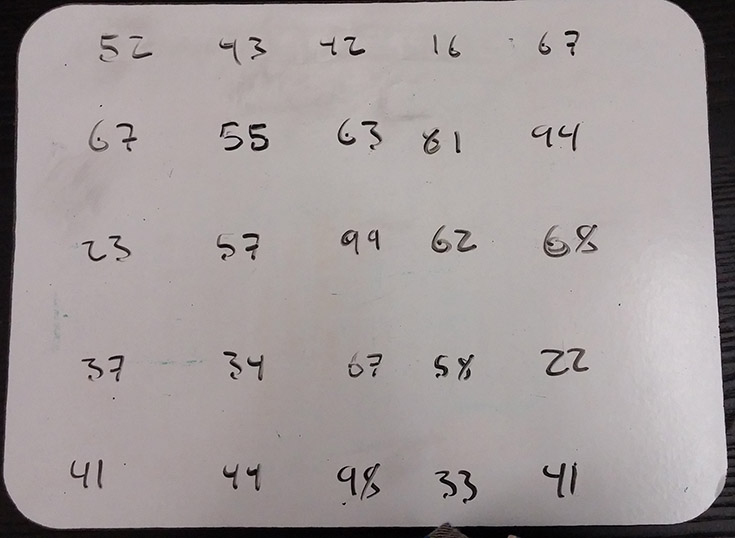 52 43 42 16 67
67 55 63 81 94
23 57 99 62 68
37 34 67 58 22
41 44 98 33 41